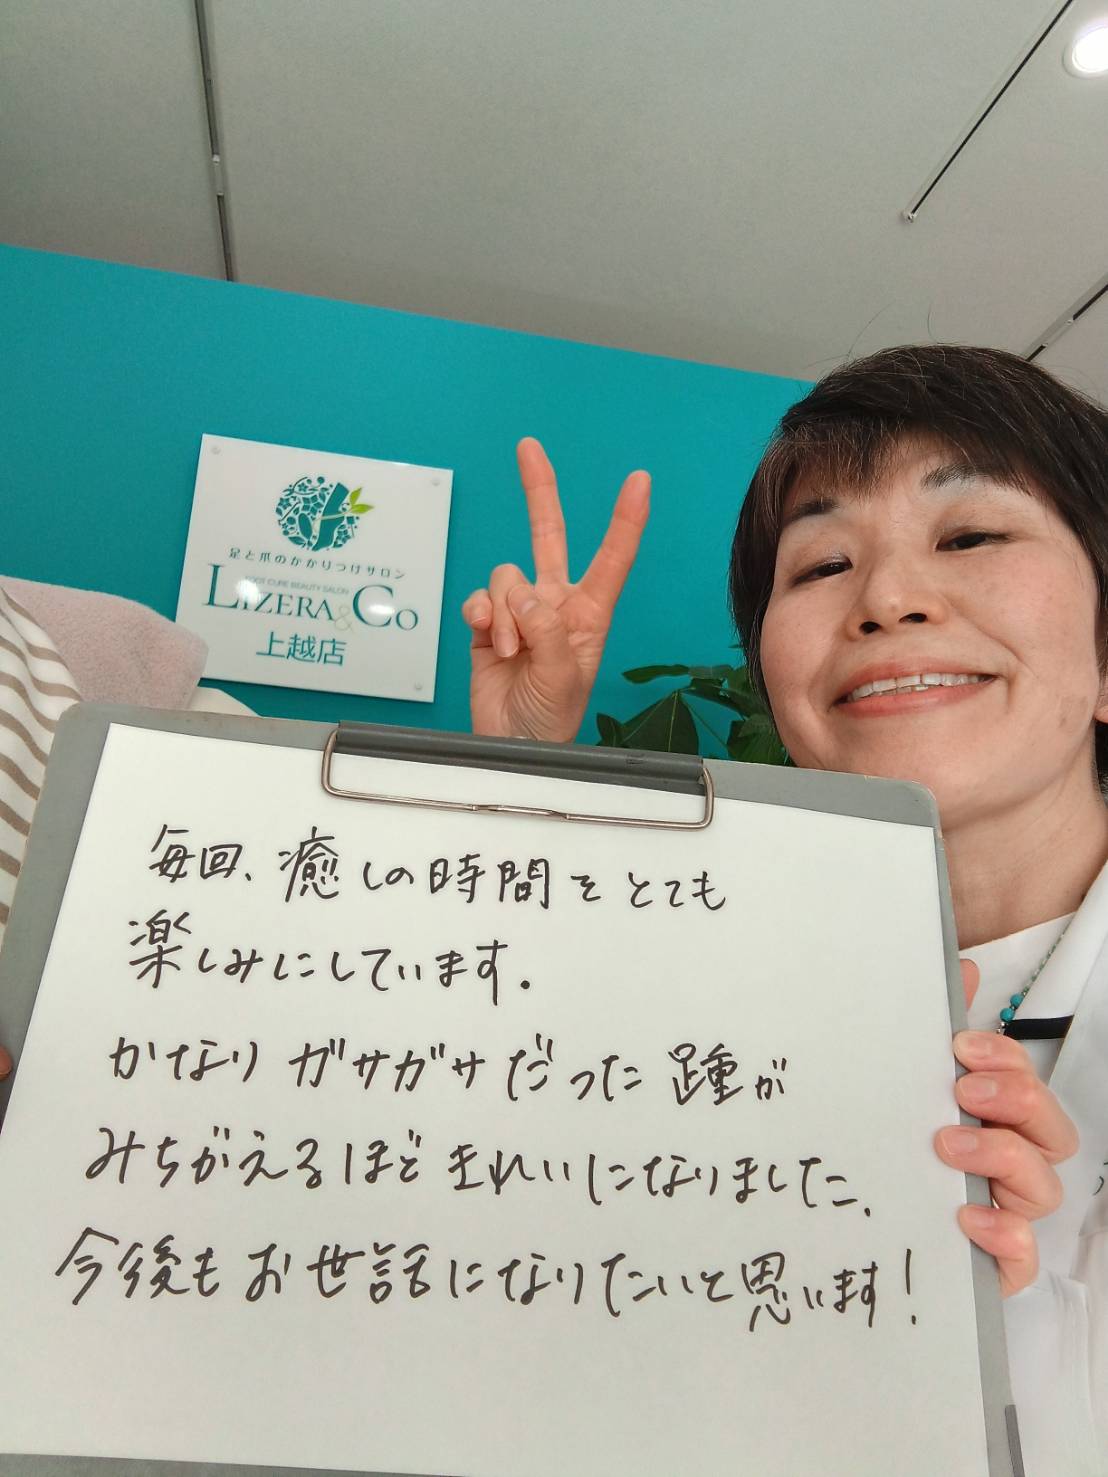 足と爪のかかりつけサロン
FOOT CURE BEAUTY SALON
LIZERA&CO
上越店
毎回、癒しの時間をとても
楽しみにしています。
かなりガサガサだった踵が
みちがえるほどきれいになりました。
今後もお世話になりたいと思います！